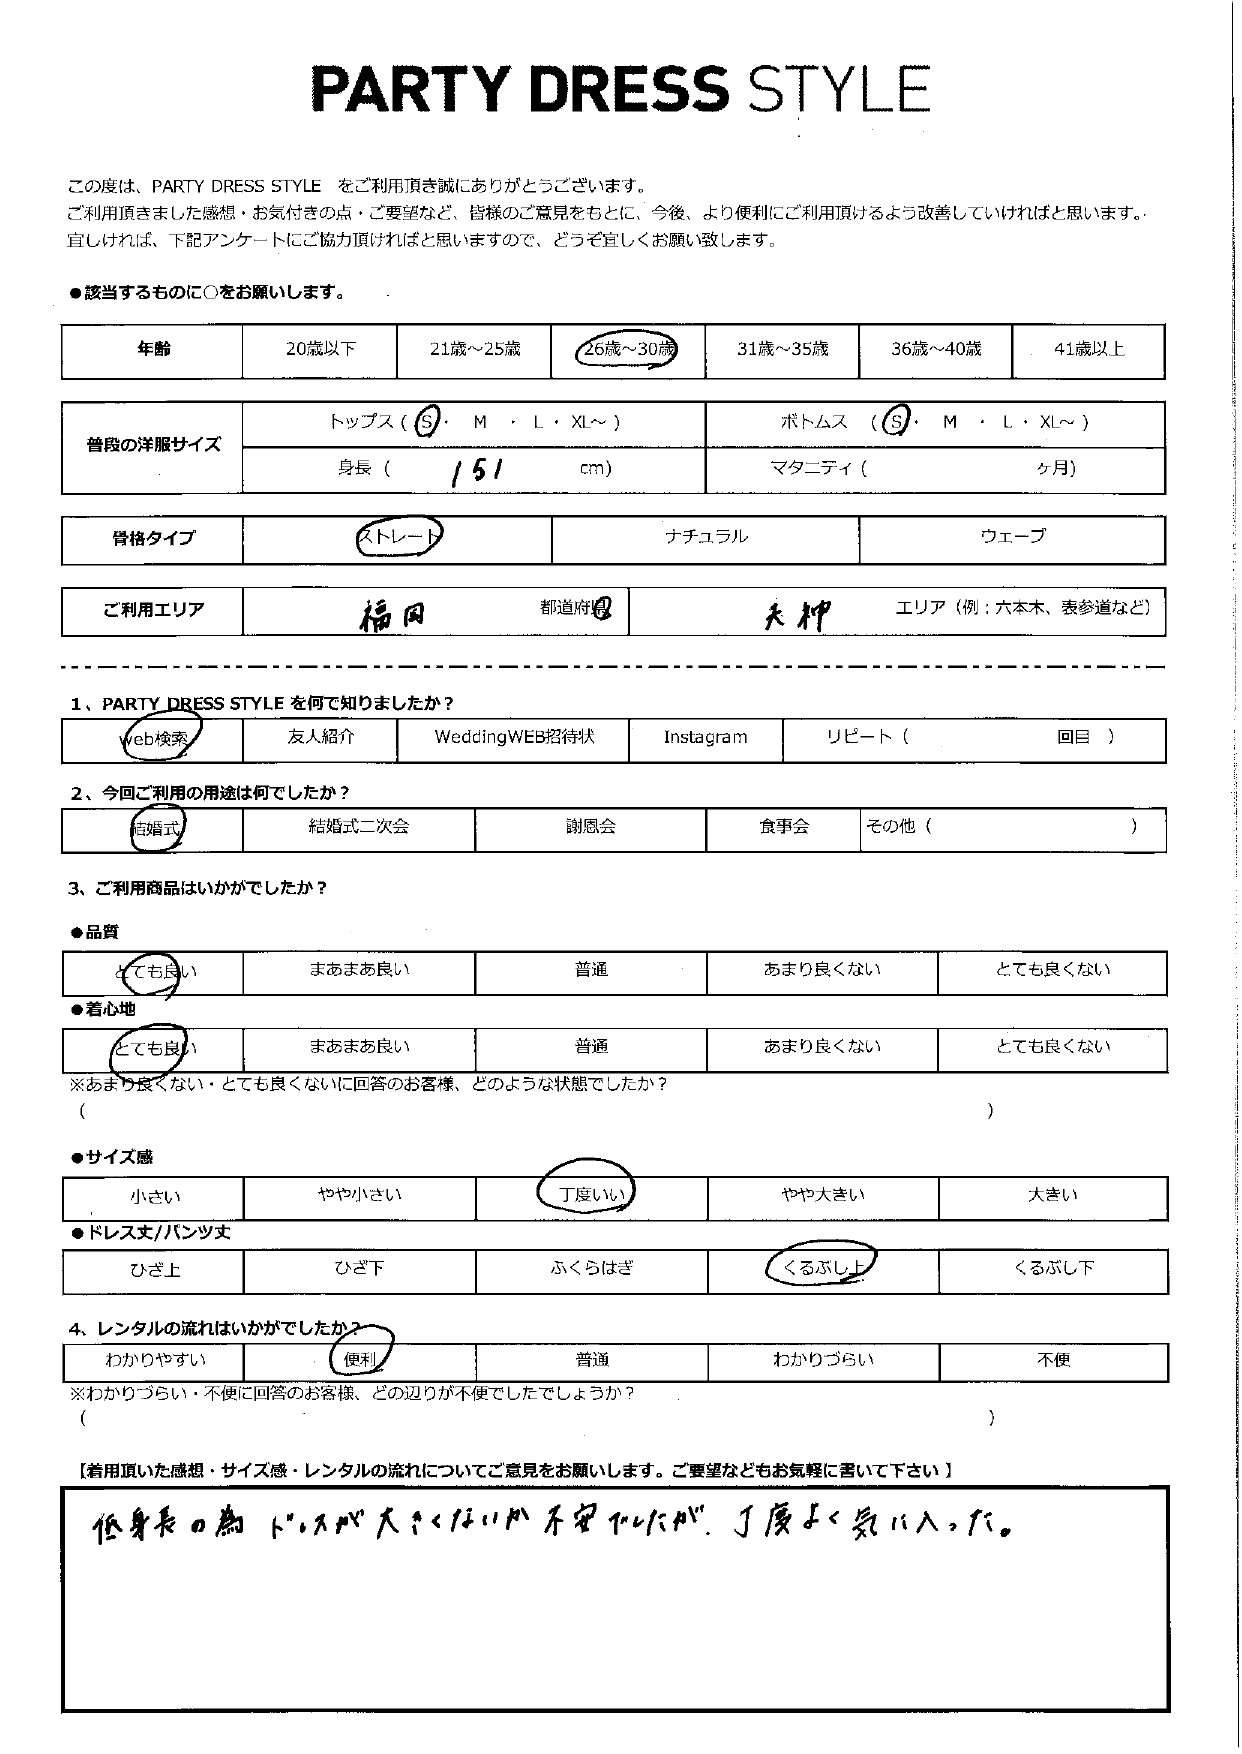 PARTY DRESS STYLE
この度は、PARTY DRESS STYLE をご利用頂き誠にありがとうございます。
ご利用頂きました感想・お気付きの点・ご要望など、皆様のご意見をもとに、今後、より便利にご利用頂けるよう改善していければと思います。
宜しければ、下記アンケートにご協力頂ければと思いますので、どうぞ宜しくお願い致します。
●該当するものに○をお願いします。
年齢 20歳以下 21歳～25歳 26歳～30歳 31歳～35歳 36歳～40歳 41歳以上
普段の洋服サイズ トップス ( S ・ M ・ L ・ XL～ ) ボトムス ( S ・ M ・ L ・ XL～ )
身長 ( 151 cm) マタニティ ( ヶ月)
骨格タイプ ストレート ナチュラル ウェーブ
ご利用エリア 福岡 都道府県 天神 エリア（例：六本木、表参道など）
1、PARTY DRESS STYLE を何で知りましたか？
Web検索 友人紹介 WeddingWEB招待状 Instagram リピート ( 回目 )
2、今回ご利用の用途は何でしたか？
結婚式 結婚式二次会 謝恩会 食事会 その他 ( )
3、ご利用商品はいかがでしたか？
●品質
とても良い まあまあ良い 普通 あまり良くない とても良くない
●着心地
とても良い まあまあ良い 普通 あまり良くない とても良くない
※あまり良くない・とても良くないに回答のお客様、どのような状態でしたか？
( )
●サイズ感
小さい やや小さい 丁度いい やや大きい 大きい
●ドレス丈/パンツ丈
ひざ上 ひざ下 ふくらはぎ くるぶし上 くるぶし下
4、レンタルの流れはいかがでしたか？
わかりやすい 便利 普通 わかりづらい 不便
※わかりづらい・不便に回答のお客様、どの辺りが不便でしたでしょうか？
( )
【着用頂いた感想・サイズ感・レンタルの流れについてご意見をお願いします。ご要望などもお気軽に書いて下さい】
低身長の為 ドレスが大きくないか不安でしたが、丁度よく気に入った。